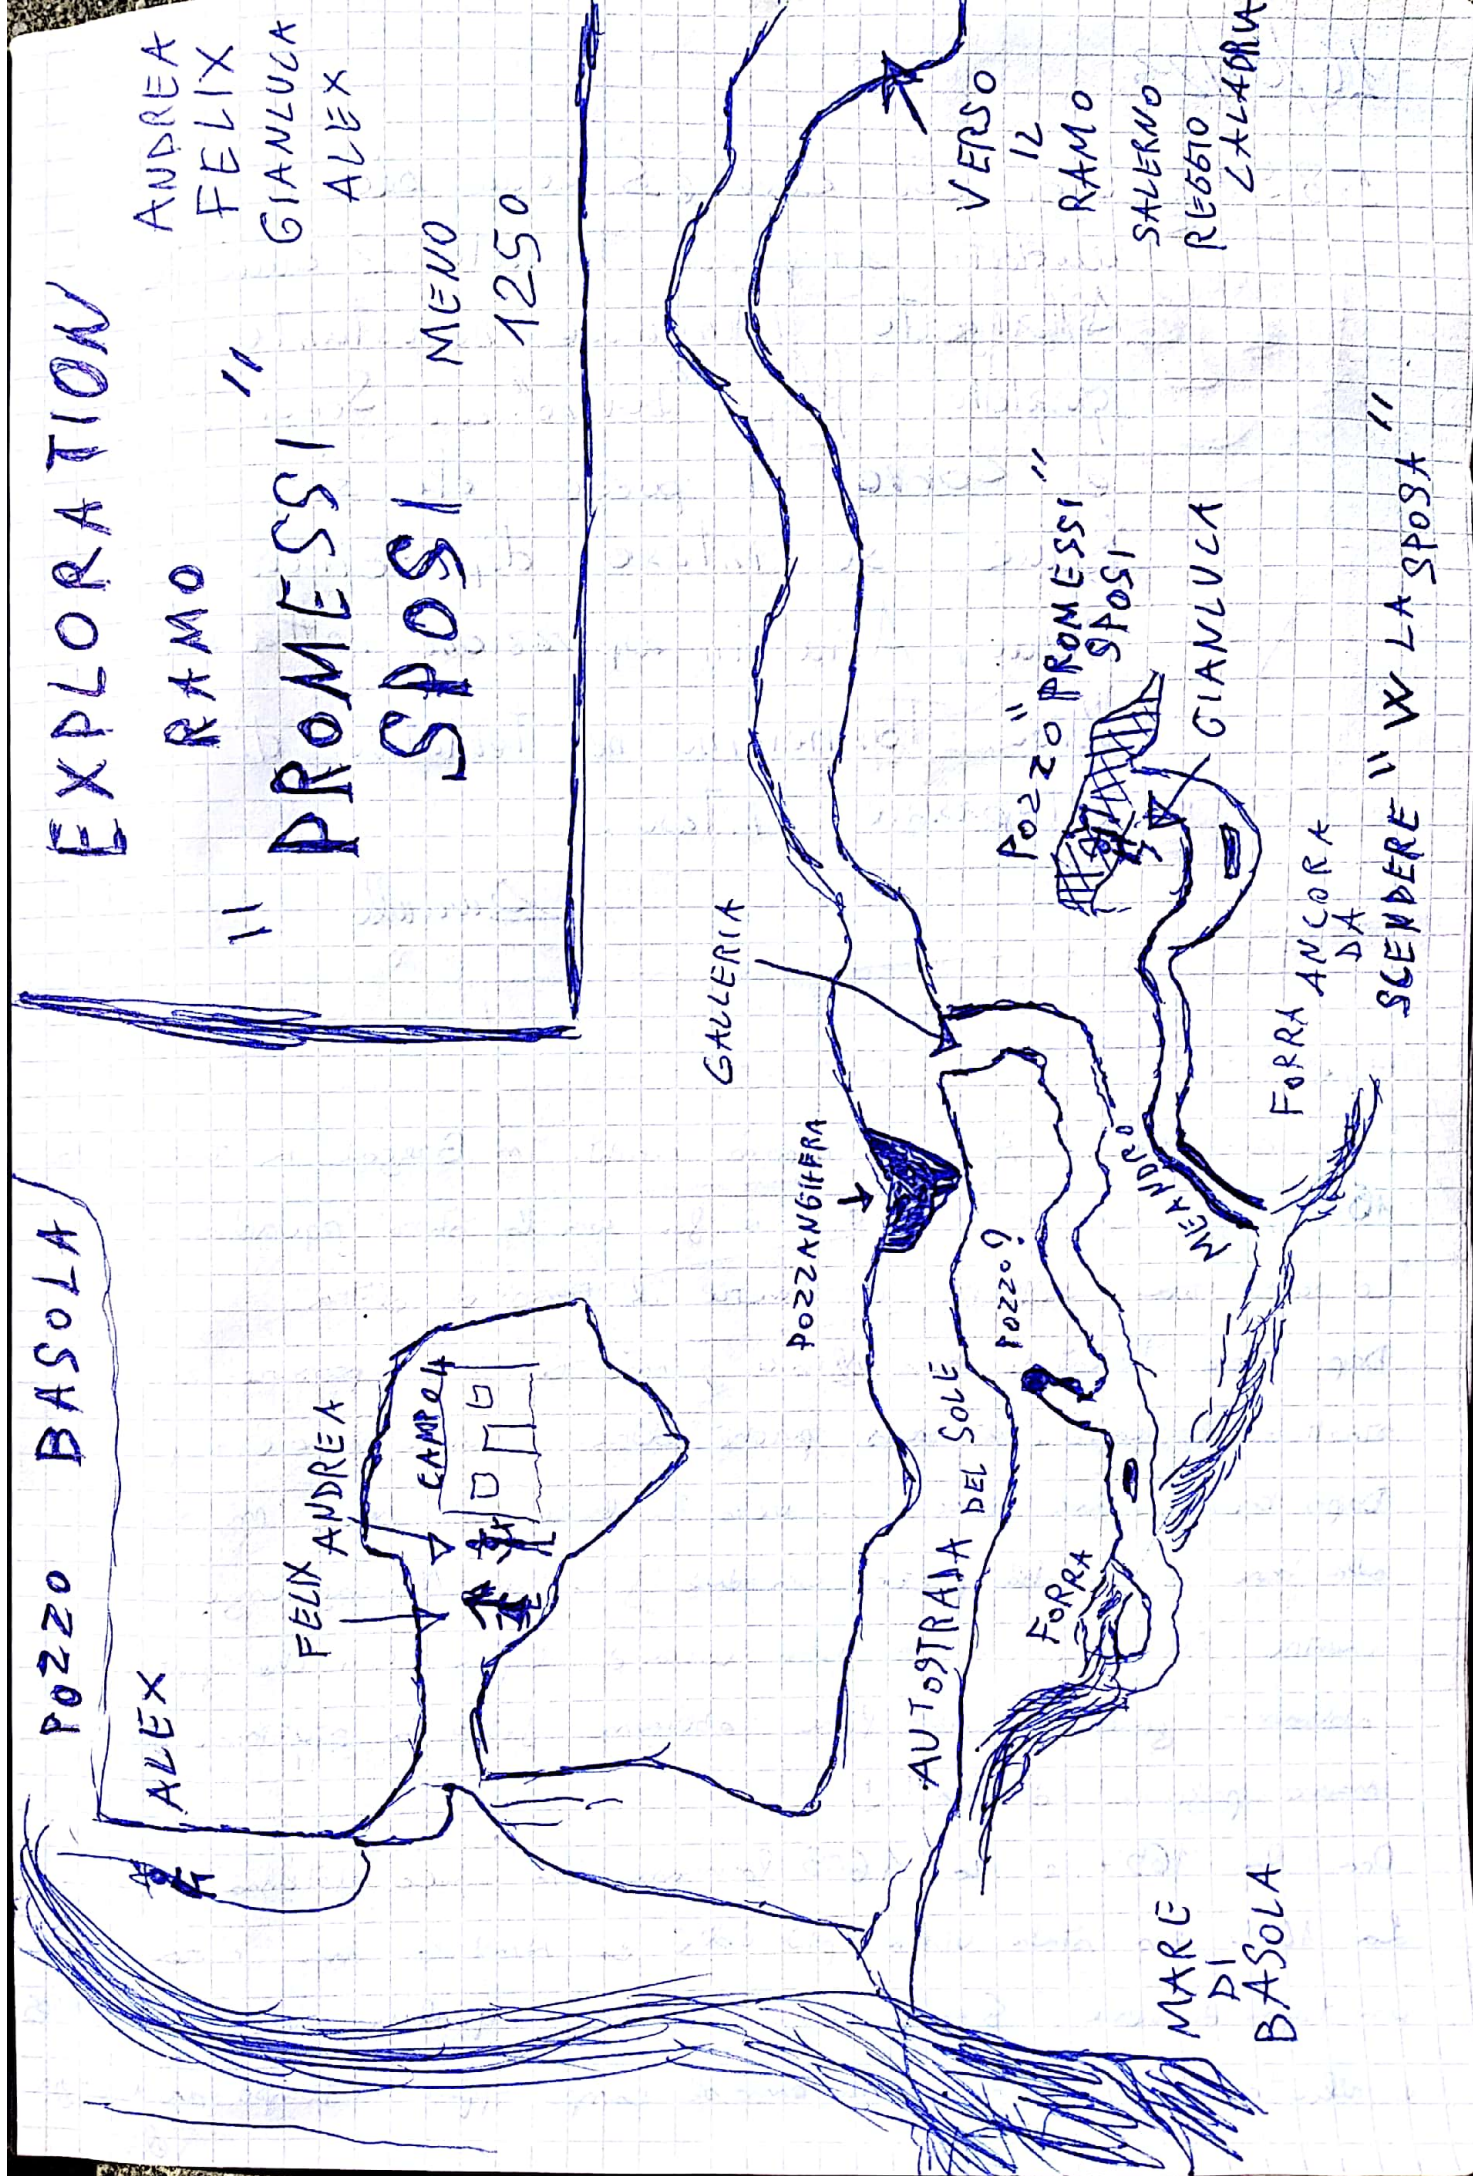 EXPLORATION
RAMO
"PROMESSI"
SPOSI
MENO
1250
ANDREA
FELIX
GIANLUCA
ALEX
POZZO BASOLA
ALEX
FELIX
ANDREA
CAMPO
GALLERIA
POZZANGHERA
AUTOSTRADA DEL SOLE
POZZO?
FORRA
MEANDRO
POZZO "PROMESSI"
SPOSI
GIANLUCA
FORRA ANCORA
DA
SCENDERE "W LA SPOSA"
VERSO
IL
RAMO
SALERNO
REGGIO
CALABRIA
MARE
DI
BASOLA